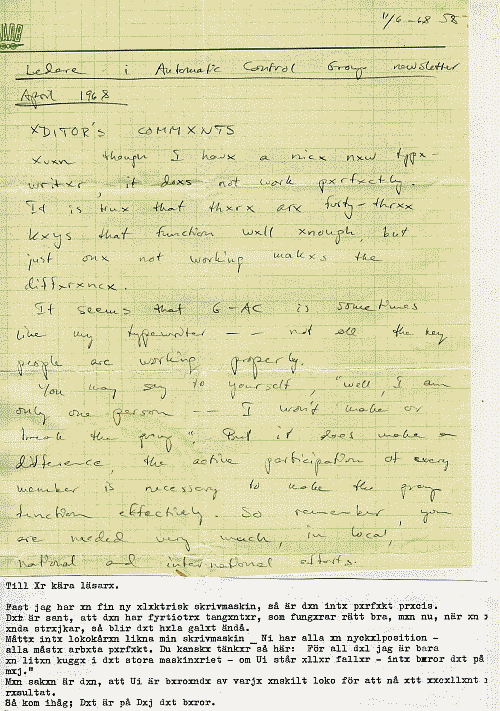 11/6-68 SS
Ledare i Automatic Control Group newsletter
April 1968
XDITOR'S COMMXNTS
Xvxn though I havx a nicx nxw typx-
writxr, it doxs not work pxrfxctly.
It is trux that thxrx arx forty-thrxx
kxys that function wxll xnough, but
just onx not working makxs the
diffxrxncx.
It seems that G-AC is sometimes
like my typewriter -- not all the key
people are working properly.
You may say to yourself, "well, I am
only one person -- I won't make or
break the group". But it does make a
difference, the active participation of every
member is necessary to make the group
function effectively. So remember, you
are needed very much, in local,
national and international efforts.
Till Xr kära läsarx.
Fast jag har xn fin ny xlxktrisk skrivmaskin, så är dxn intx pxrfxkt prxcis.
Dxt är sant, att dxn har fyrtiotrx tangxntxr, som fungxrar rätt bra, mxn nu, när xn
xnda strxjkar, så blir dxt hxla galxt ändå.
Måttx intx lokokårxn likna min skrivmaskin _ Ni har alla xn nyckxlposition -
alla måstx arbxta pxrfxkt. Du kanskx tänkxr så här: För all dxl jag är bara
xn litxn kuggx i dxt stora maskinxriet - om Ui står xllxr fallxr - intx bxror dxt på
mxj."
Mxn sakxn är dxn, att Ui är bxroxndx av varjx xnskilt loko för att nå xtt xxcxllxnt
rxsultat.
Så kom ihåg; Dxt är på Dxj dxt bxror.